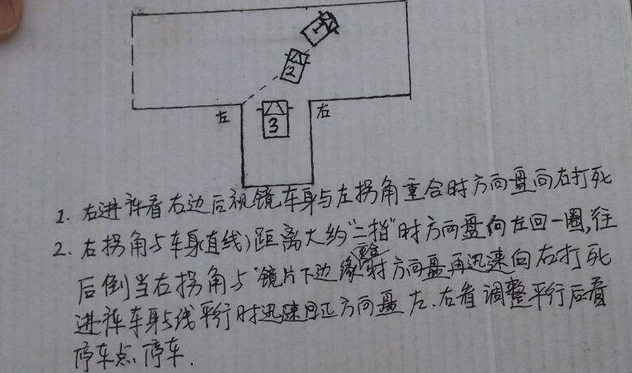 1
2
左 右
3
1. 右进许看右边后视镜车身与左拐角重合时方向盘向右打死
2. 右拐角与车身(直线)距离大约"二拍"时方向盘向左回一圈,往
后倒当右拐角与镜片下边缘重叠时方向盘再迅速向右打死
进许车身与线平行时迅速回正方向盘左.右看调整平行后看
停车点.停车.